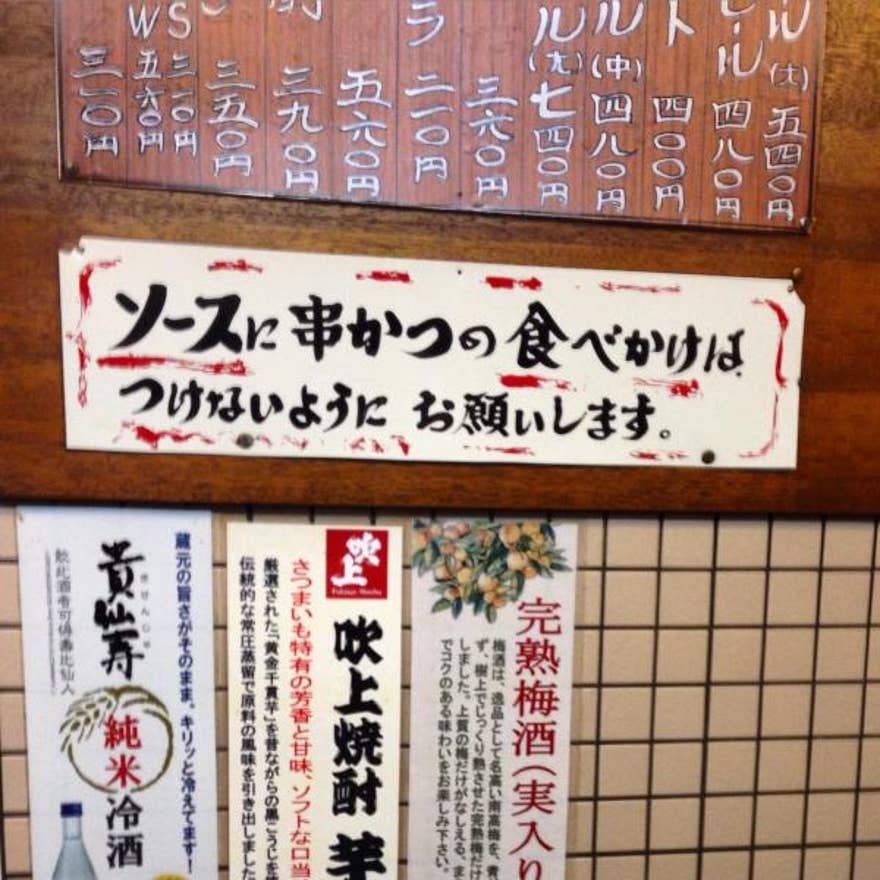 ール(大)五四〇円
ビール四八〇円
ト四〇〇円
ル(中)四八〇円
ル(大)七四〇円
三六〇円
ラ二一〇円
五六〇円
三九〇円
三五〇円
S三一〇円
W五六〇円
三一〇円
ソースに串かつの食べかけは
つけないようにお願いします。
完熟梅酒(実入り
梅酒は、逸品として名高い南高梅を、
ず、樹上でじっくり熟させた完熟梅だけ
しました。上質の梅だけがなしえる、ま
でコクのある味わいをお楽しみ下さい。
吹上
吹上焼酎 芋
さつまいも特有の芳香と甘味、ソフトな口当
厳選された「黄金千貫芋」を昔ながらの黒こうじを
伝統的な常圧蒸留で原料の風味を引き出しました
蔵元の旨さがそのまま。キリッと冷えてます!
貴仙寿
きせんじゅ
純米冷酒
飲此酒者可得壽比仙人